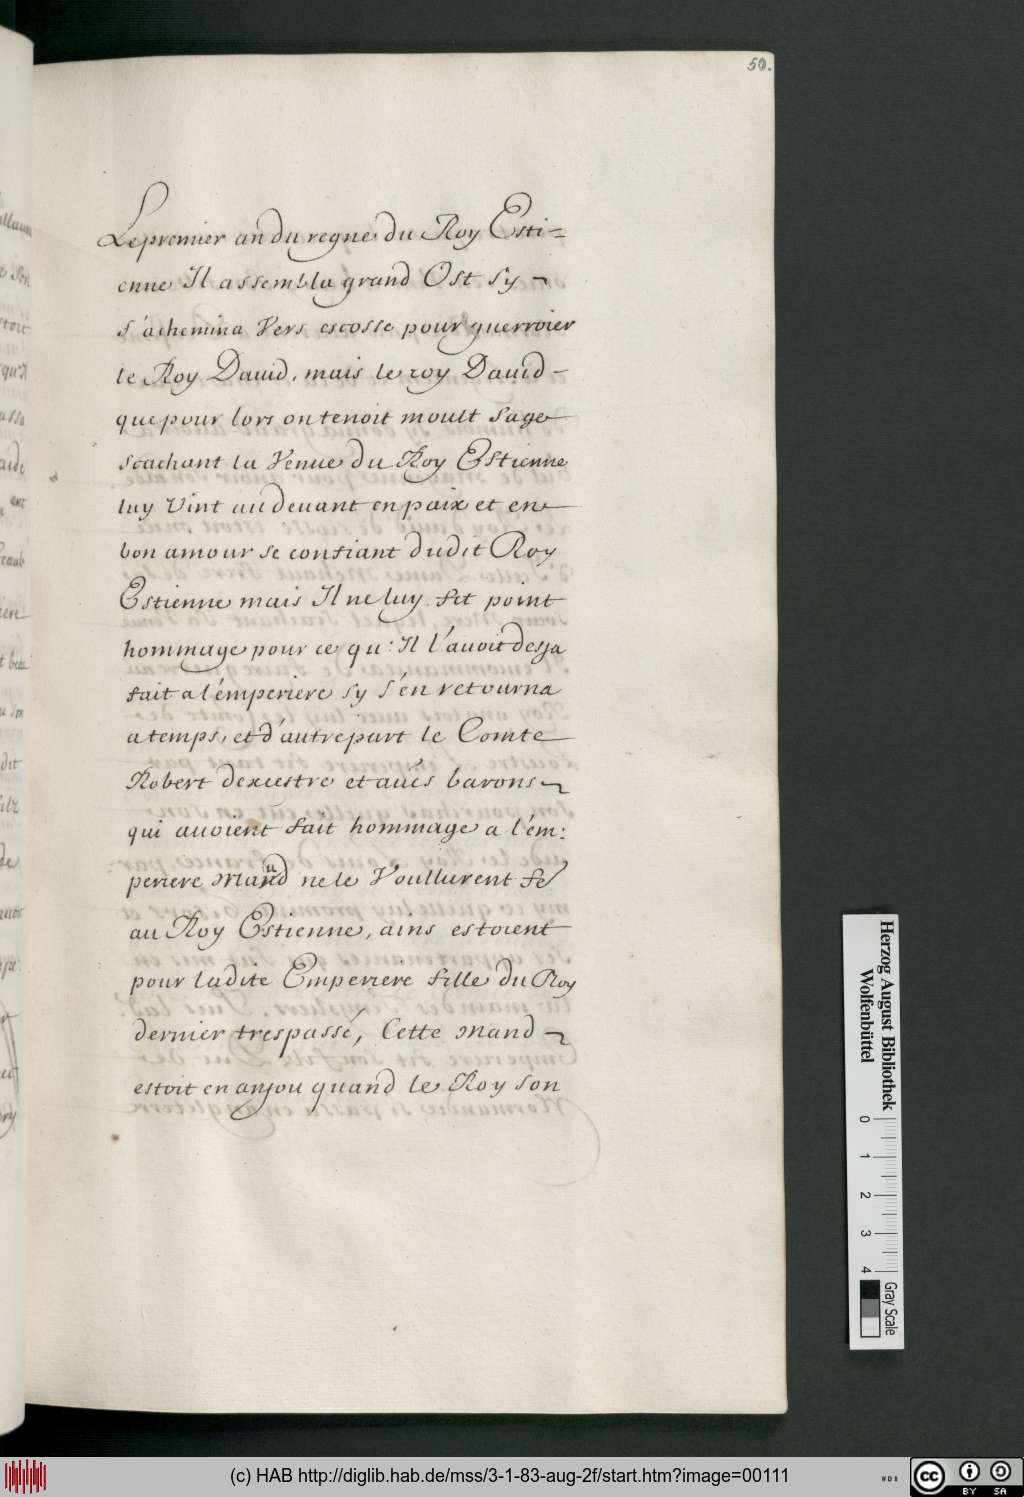 50.
Le premier an du regne du Roy Esti=
enne Il assembla grand Ost sy ¬
s'achemina Vers escosse pour guerroier
le Roy Dauid, mais le roy Dauid -
que pour lors on tenoit moult sage
scachant la Venue du Roy Estienne
luy Vint au deuant en paix et en
bon amour se confiant dudit Roy
Estienne mais Il ne luy fit point
hommage pour ce qu: Il l'auoit desja
fait a l'émperiere sy s'én retourna
a temps, et d'autre part le Comte
Robert dexcestre et aucūs barons ¬
qui auoient fait hommage a l'ém:
periere Maud ne le Voullurent fe
au Roy Estienne, ains estoient
pour ladite Emperiere fille du Roy
dernier trespassé, Cette Mand ¬
estoit en anjou quand le Roy son
Herzog August Bibliothek
Wolfenbüttel
0 1 2 3 4
Gray Scale
(c) HAB http://diglib.hab.de/mss/3-1-83-aug-2f/start.htm?image=00111
cc BY SA